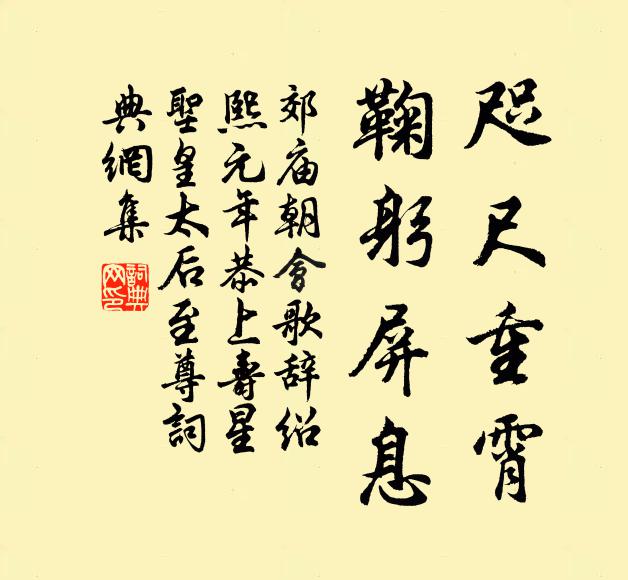 咫尺重霄
鞠躬屏息
郊庙朝會歌辞绍
熙元年恭上壽星
聖皇太后至尊詞
典網集
詞典网印